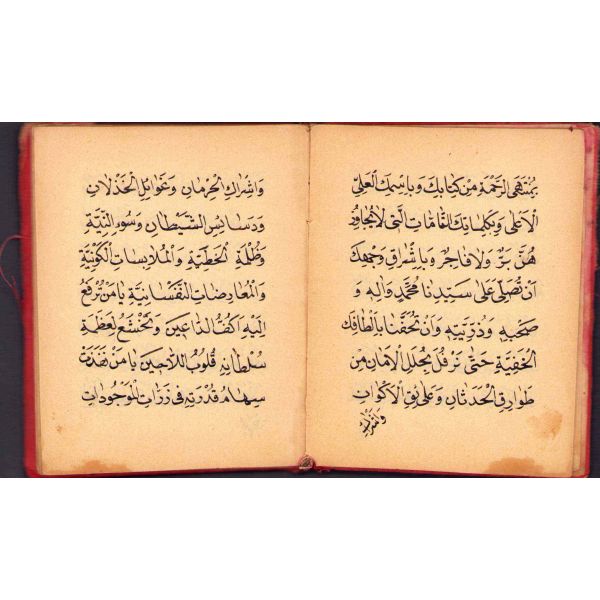 بِمُنْتَهَى الرَّحْمَةِ مِنْ كِتَابِكَ وَبِاسْمِكَ الْعَلِيِّ
الْأَعْلَى وَبِكَلِمَاتِكَ التَّامَّاتِ الَّتِي لَا يُجَاوِزُ
هُنَّ بَرٌّ وَلَا فَاجِرٌ وَبِإِشْرَاقِ وَجْهِكَ
أَنْ تُصَلِّيَ عَلَى سَيِّدِنَا مُحَمَّدٍ وَآلِهِ وَ
صَحْبِهِ وَذُرِّيَّتِهِ وَأَنْ تُحِفَّنَا بِأَلْطَافِكَ
الْخَفِيَّةِ حَتَّى نَرْفُلَ بِحُلَلِ الْأَمَانِ مِنْ
طَوَارِقِ الْحَدَثَانِ وَعَلَائِقِ الْأَكْوَانِ
وَاشْرَاكِ
وَاشْرَاكِ الْحِرْمَانِ وَغَوَائِلِ الْخَذْلَانِ
وَدَسَائِسِ الشَّيْطَانِ وَسُوءِ النِّيَّةِ
وَظُلْمَةِ الْخَطِيَّةِ وَالْمُلَابَسَاتِ الْكَوْنِيَّةِ
وَالْمُعَارَضَاتِ النَّفْسَانِيَّةِ يَا مَنْ تُرْفَعُ
إِلَيْهِ أَكُفُّ الدَّاعِينَ وَتَخْشَعُ لِعَظَمَةِ
سُلْطَانِهِ قُلُوبُ اللَّاجِينَ يَا مَنْ نَفَذَتْ
سِهَامُ قُدْرَتِهِ فِي ذَرَّاتِ الْمَوْجُودَاتِ